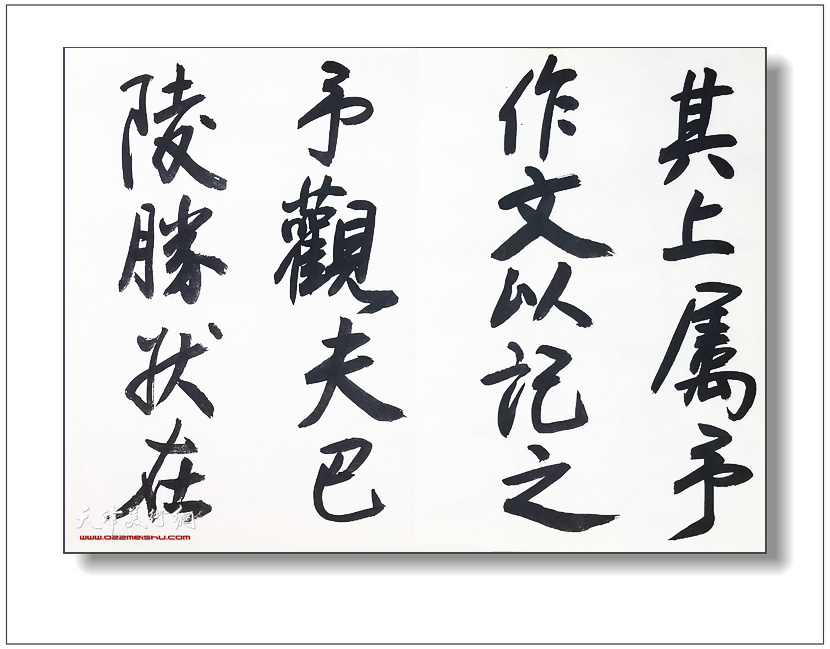 其上属予
作文以记之
予觀夫巴
陵勝状在
天津美术網
www.022meishu.com